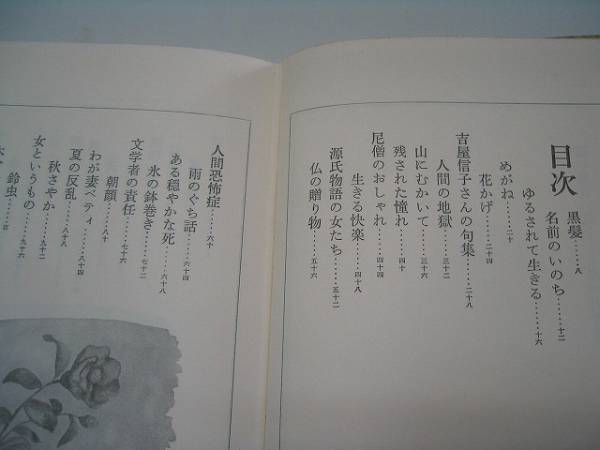 目次
黒髪……八
名前のいのち……十二
ゆるされて生きる……十六
めがね……二十
花かげ……二十四
吉屋信子さんの句集……二十八
人間の地獄……三十二
山にむかいて……三十六
残された憧れ……四十
尼僧のおしゃれ……四十四
生きる快楽……四十八
源氏物語の女たち……五十二
仏の贈り物……五十六
人間恐怖症……六十
雨のぐち話……六十四
ある穏やかな死……六十八
氷の鉢巻き……七十二
文学者の責任……七十六
朝顔……八十
わが妻ベティ……八十四
夏の反乱……八十八
秋さやか……九十二
女というもの……九十六
鈴虫……百